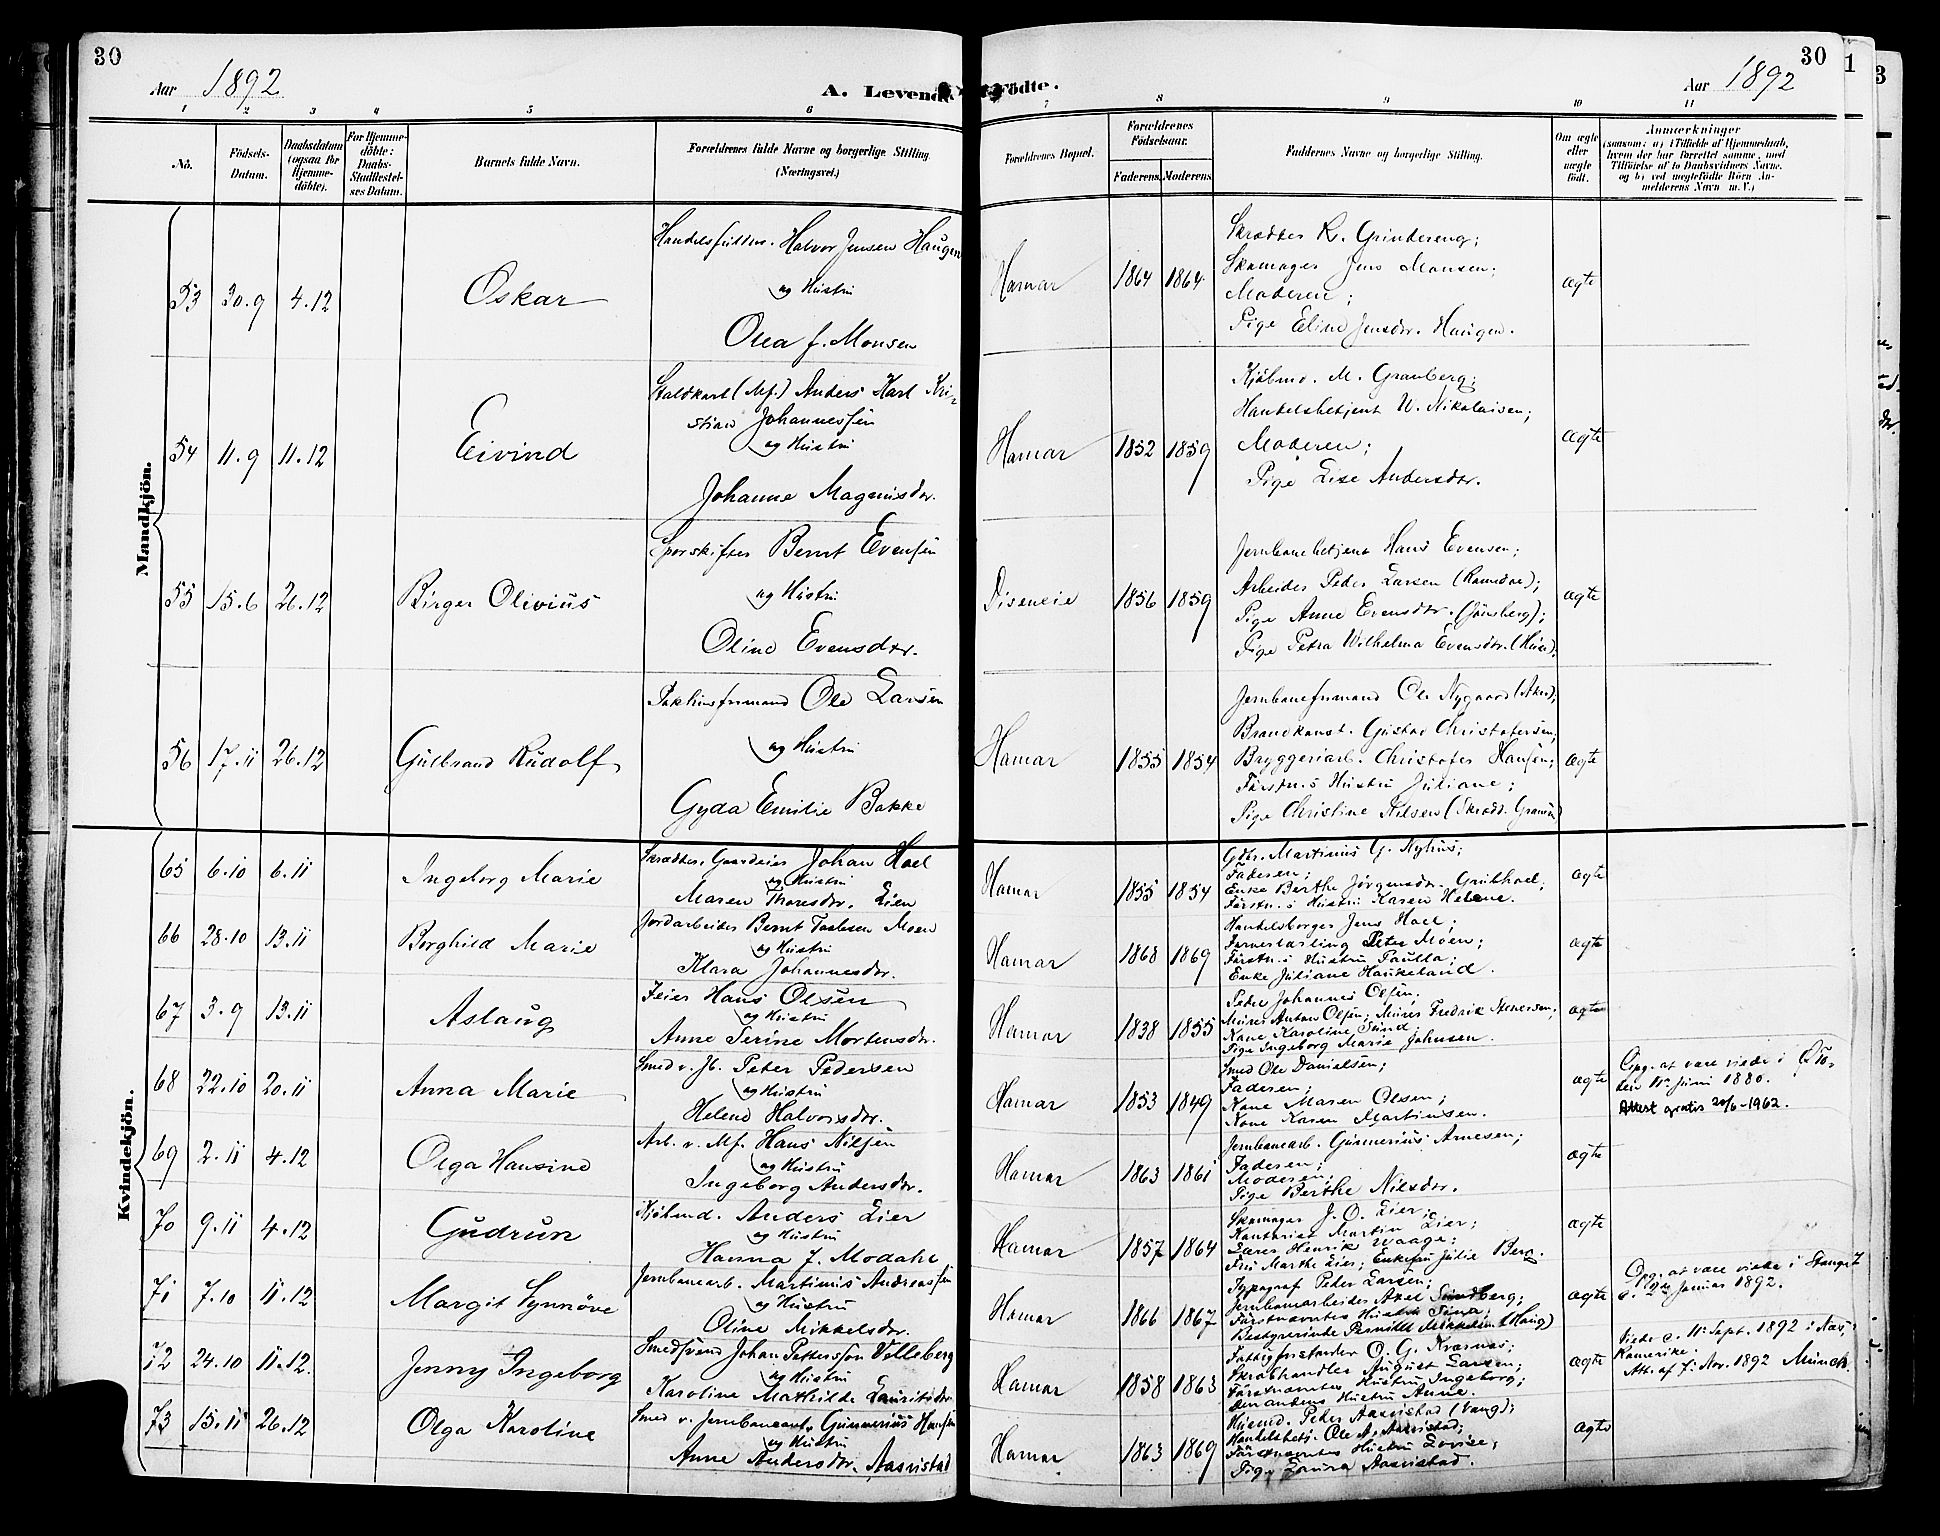 30
Aar 1892
A. Levende Födte.
30
Aar 1892
1 2 3 4 5 6 7 8 9 10 11
No.
Födsels-Datum.
Daabsdatum (ogsaa for Hjemmedöbte).
For Hjemmedöbte: Daabs-Stadfestelses Datum.
Barnets fulde Navn.
Forældrenes fulde Navne og borgerlige Stilling (Næringsvei.)
Forældrenes Bopæl.
Forældrenes Födselsaar.
Faderens. Moderens.
Faddernes Navne og borgerlige Stilling.
Om ægte eller uægte födt.
Anmærkninger
(saasom: a) i Tilfælde af Hjemmedaab, hvem der har forrettet samme, med Tilföielse af to Daabsvidners Navne, og b) ved uegtefödte Börn Anmelderens Navn m. V.)
Mandkjön.
53 30.9 4.12 Oskar
Halvor Jensen Haugen
og Hustru
Olea f. Monsen
Hamar 1864 1864
Skrædder R. Grindereng;
Skomager Jens Monsen;
Moderen;
Pige Eline Jensdtr. Haugen.
ægte
54 11.9 11.12 Eivind
Staldkarl (Mf.) Anders Karl Kri-
stian Johannessen
og Hustru
Johanne Magnusdtr.
Hamar 1852 1859
Kjöbmd. M. Granberg;
Handelsbetjent W. Nikolaisen;
Moderen;
Pige Lise Andersdtr.
ægte
55 15.6 26.12 Birger Olivius
Sporskifter Bernt Evensen
og Hustru
Oline Evensdtr.
Diseneie 1856 1859
Jernbanebetjent Hans Evensen;
Arbeider Peder Larsen (Romedal);
Pige Anne Evensdtr. (Jönsberg);
Pige Petra Wilhelma Evensdtr.
ægte
56 17.11 26.12 Gulbrand Rudolf
Pakhusformand Ole Larsen
og Hustru
Gyda Emilie Bakke
Hamar 1855 1854
Jernbaneformand Ole Nygaard (Aker);
Brandkonst. Gustav Christofersen;
Bryggeriarb. Christofer Hansen;
Förstn.s Hustru Juliane;
Pige Christine Nilsen
ægte
Kvindekjön.
65 6.10 6.11 Ingeborg Marie
Skrædder, Gaardeier Johan Hoel
og Hustru
Maren Thoresdtr. Lien
Hamar 1855 1854
Gdbr. Martinus G. Nyhus;
Faderen;
Enke Berthe Jörgensdtr. Grubhoel;
Förstn.s Hustru Karen Helene.
ægte
66 28.10 13.11 Borghild Marie
Jordarbeider Bernt Moen
og Hustru
Klara Johannesdtr.
Hamar 1868 1869
Handelsborger Jens Hoel;
Peter Moen;
Förstn.s Hustru Paulla;
Enke Juliane Haukeland.
ægte
67 3.9 13.11 Aslaug
Feier Hans Olsen
og Hustru
Anne Serine Mortensdtr.
Hamar 1838 1855
Peder Johannes Olsen;
Murer Anton Olsen; Murer Fredrik
Kone Karoline Sund;
Pige Ingeborg Marie Johnsen.
ægte
68 22.10 20.11 Anna Marie
Smed v. Jb. Peter Pedersen
og Hustru
Helene Halvorsdtr.
Hamar 1853 1849
Smed Ole Danielsen;
Faderen;
Kone Maren Olsen;
Kone Karen Martinsen.
ægte
Opg. at være viede i
den 11te Juni 1880.
Attest gratis 20/6-1962.
69 2.11 4.12 Olga Hansine
Arb. v. Mf. Hans Nilsen
og Hustru
Ingeborg Andersdtr.
Hamar 1863 1861
Jernbanearb. Gunnerius Arnesen;
Faderen;
Moderen;
Pige Berthe Nilsdtr.
ægte
70 9.11 4.12 Gudrun
Kjöbmd. Anders Lier
og Hustru
Hanna f. Modahl
Hamar 1857 1864
Skomager J. O. Lier;
Martin Lier;
Lærer Henrik Waage;
Fru Marthe Lier; Enkefru Julie Berg.
ægte
71 7.10 11.12 Margit Synnöve
Jernbanearb. Martinus Andreassen
og Hustru
Oline Mikkelsdtr.
Hamar 1866 1867
Typograf Peter Larsen;
Jernbanearbeider Axel Sundberg;
Förstnævntes Hustru Sina;
Bestyrerinde Pernille Mikkelsen (Haug)
ægte
Opg. at være viede i Stange
Januar 1892.
72 24.10 11.12. Jenny Ingeborg
Smedsvend Johan Pettersson Vollsberg
og Hustru
Karoline Mathilde Lauritsdtr.
Hamar 1858 1863
Fattigforstander O. G. Kværnas;
Skrabhandler August Larsen;
Förstnævntes Hustru Ingeborg;
den andens Hustru Anne.
ægte
Viede d. 11te Sept. 1892 i Næs,
Romerike.
Att. af 7. Nov. 1892 Munch.
73 15.11 26.12 Olga Karoline
Smed v. Jernbaneant. Gunnerius Hansen
og Hustru
Anne Andersdtr. Aasvistad
Hamar 1863 1869
Husmd. Peder Aasvistad (Vang);
Handelsbetj. Ole A. Aasvistad;
Förstnævntes Hustru Lovise;
Pige Laura Aasvistad.
ægte